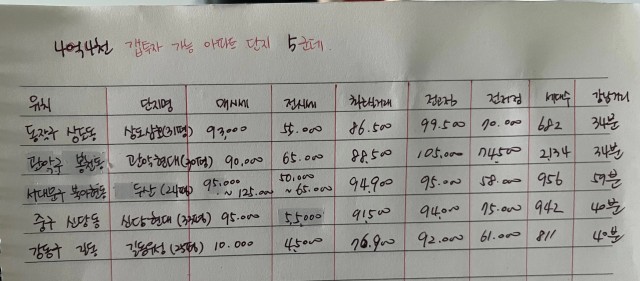 4억4천 갭투자 가능 아파트 단지 5군데.
위치 단지명 매시세 전시세 최근거래 전고점 전저점 세대수 강남거리
동작구 상도동 상도삼호(31평) 93,000 55.000 86.500 99.500 70.000 682 34분
관악구 봉천동 관악현대(30평) 90,000 65.000 88,500 105,000 74,500 2134 34분
서대문구 북아현동 두산 (24평) 95.000 ~ 125.000 50,000 ~ 65.000 94,900 95.000 58.000 956 59분
중구 신당동 신당현대 95.000 55,000 91500 94,000 75.000 942 40분
강동구 길동 길동우성(25평) 10.000 45,000 76.900 92.000 61.000 811 40분